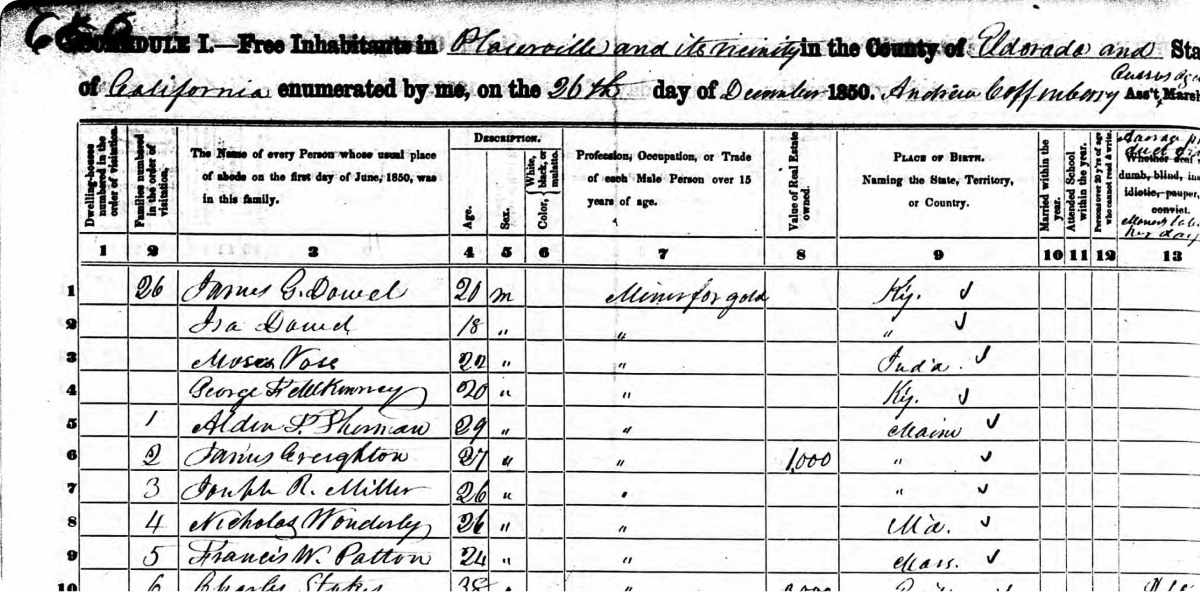 SCHEDULE I.—Free Inhabitants in Placerville and its vicinity in the County of Eldorado and Sta
of California enumerated by me, on the 26th day of December 1850. Andrew Coffenberry Ass't Marsh
Dwelling-houses numbered in the order of visitation.
Families numbered in the order of visitation.
The Name of every Person whose usual place of abode on the first day of June, 1850, was in this family.
DESCRIPTION.
Age.
Sex.
Color, White, black, or mulatto.
Profession, Occupation, or Trade of each Male Person over 15 years of age.
Value of Real Estate owned.
PLACE OF BIRTH. Naming the State, Territory, or Country.
Married within the year.
Attended School within the year.
Persons over 20 y'rs of age who cannot read & write.
Whether deaf dumb, blind, idiotic, pauper, convict.
1 2 3 4 5 6 7 8 9 10 11 12 13
1 26 James G. Dowel 20 m Miner for gold Ky. ✓
2 Ira Dowel 18 „ „ „ ✓
3 Moses Vose 22 „ „ Inda. ✓
4 George F McKinney 20 „ „ Ky. ✓
5 1 Alden P. Sherman 29 „ „ Maine ✓
6 2 James Creighton 27 „ „ 1,000 „ ✓
7 3 Joseph R. Miller 26 „ „ „ ✓
8 4 Nicholas Wonderly 26 „ „ Md. ✓
9 5 Francis W. Patton 24 „ „ Mass. ✓
10 6 Charles Stokes 38 „ „